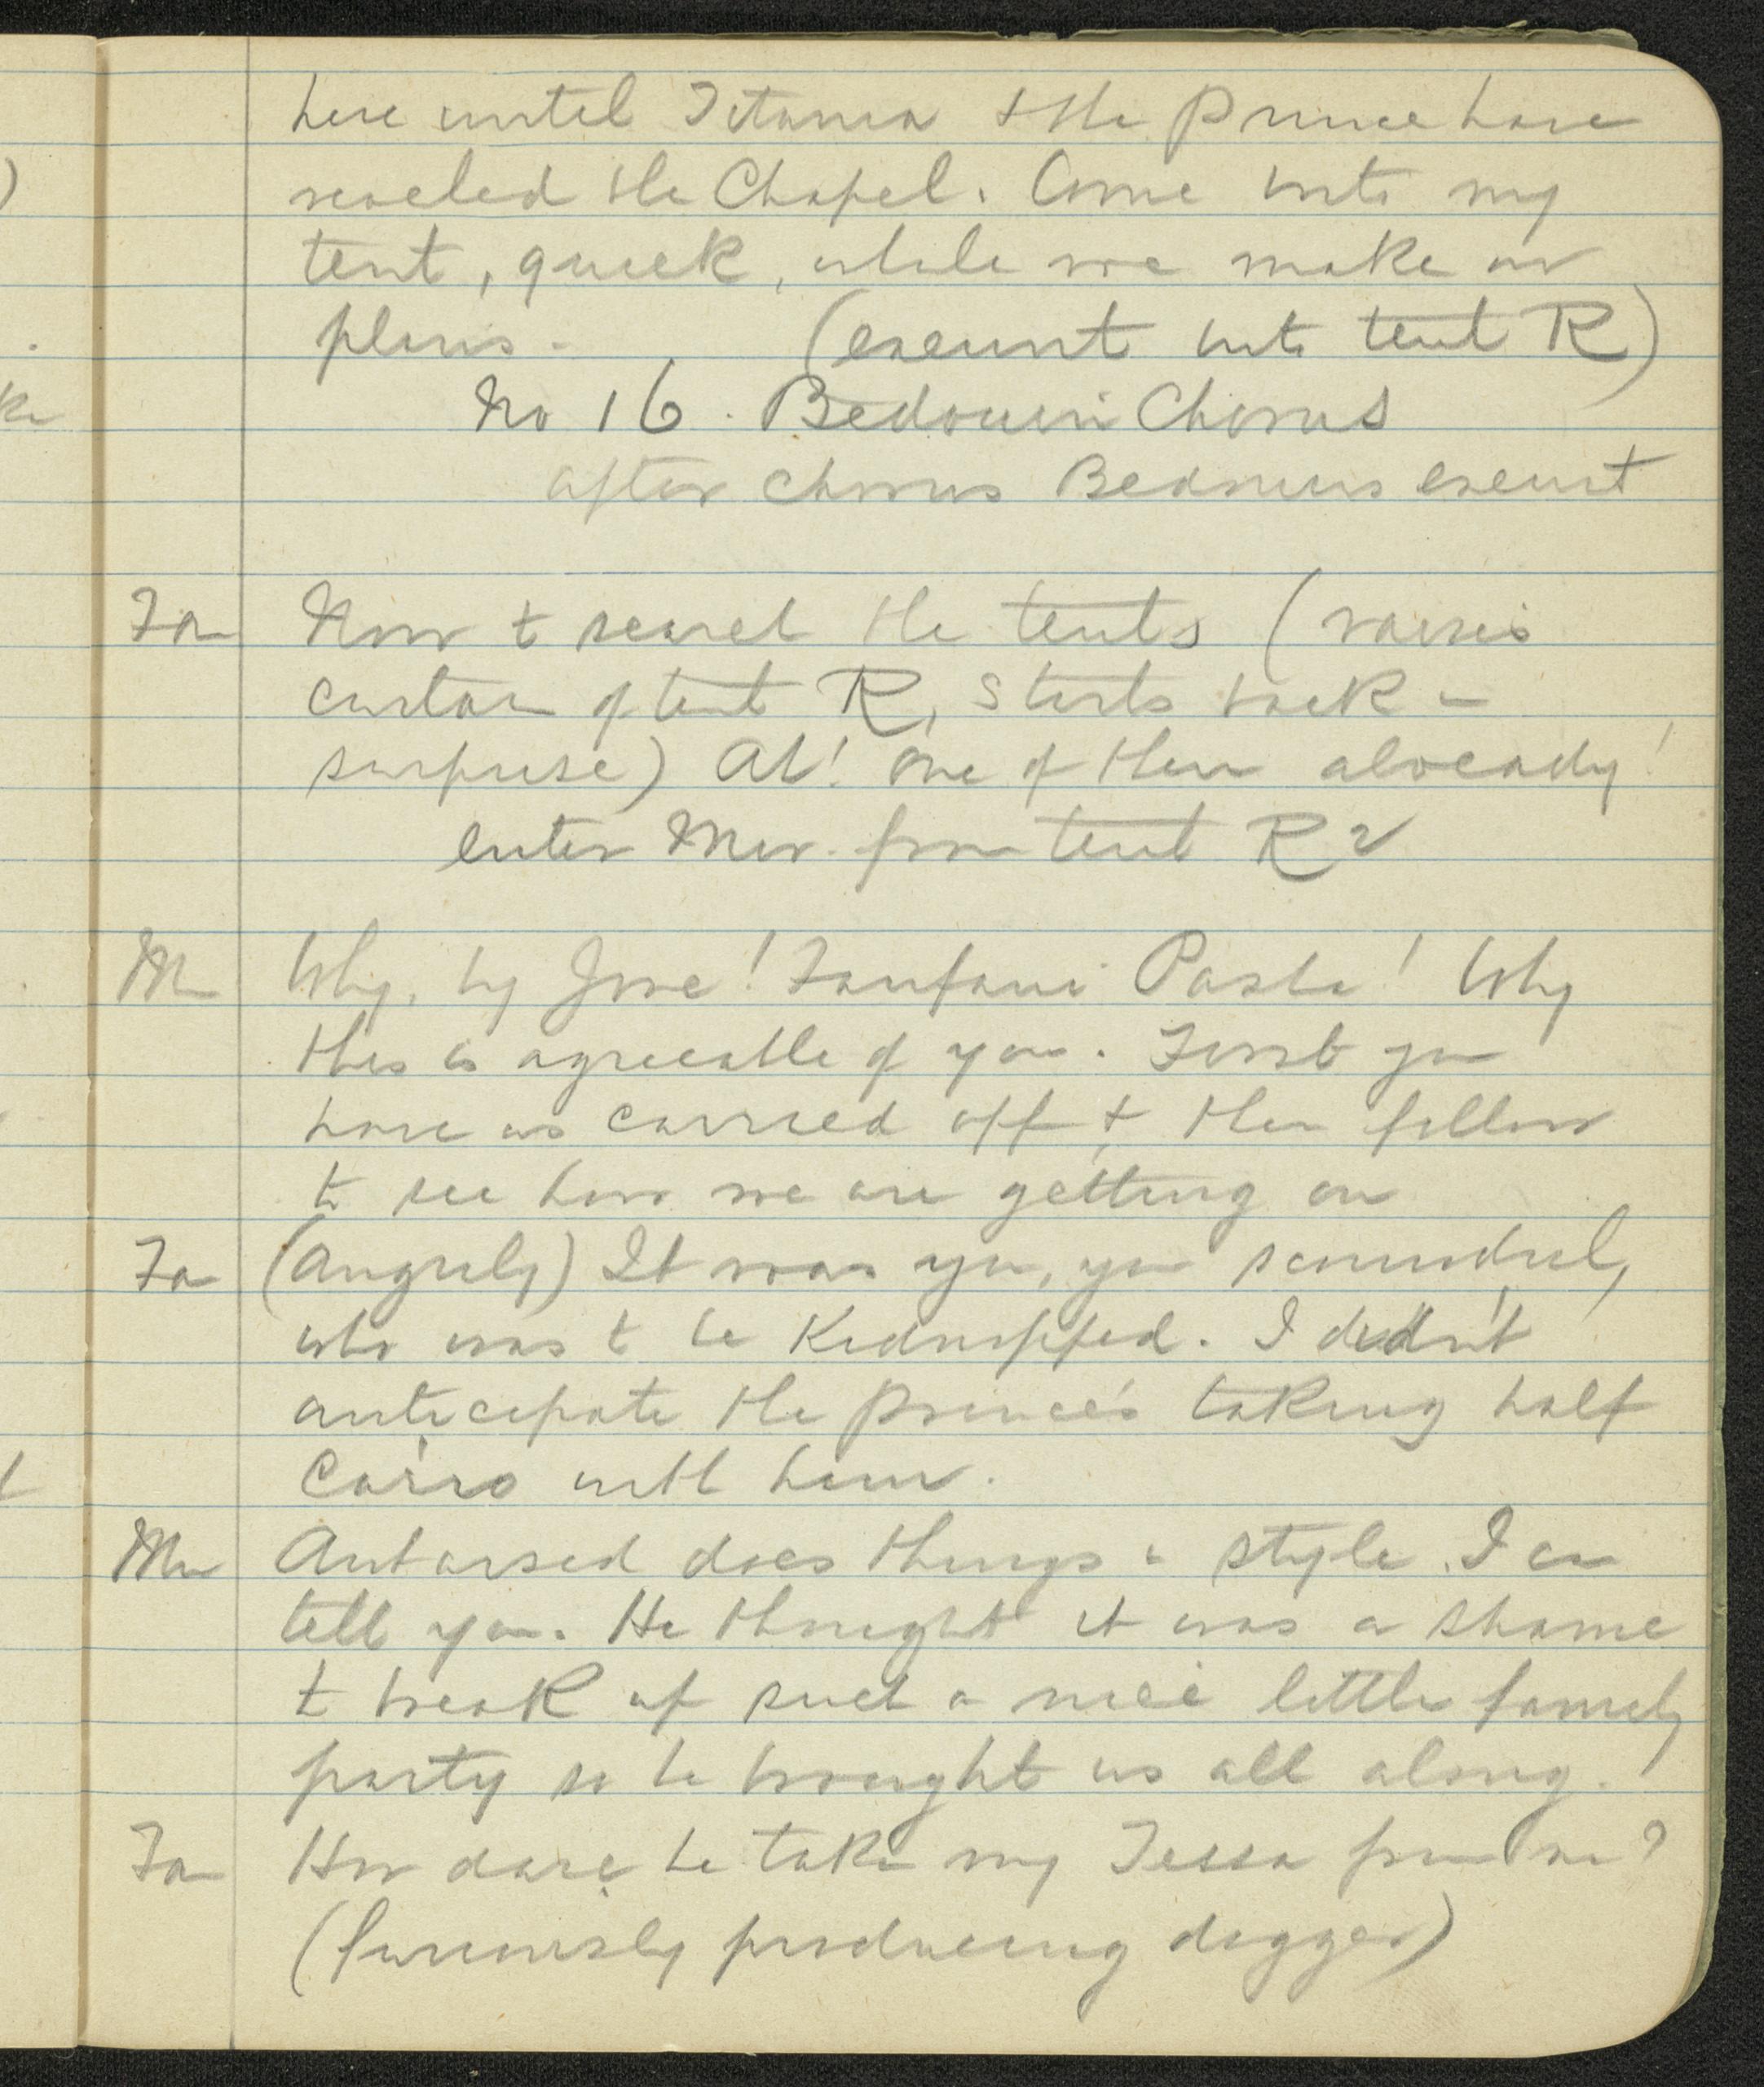 here until Titania & the Prince have
reveled the Chapel. Come into my
tent, quick, while we make our
plans. (exeunt into tent R)
No 16. Bedouin Chorus
after chorus Bedouins exeunt
Fan Now to search the tents (raises
curtain of tent R, starts back in
surprise) Ah! One of them already!
enter Mer. from tent R 2
M Why, by Jove! Fanfani Pasha! Why
this is agreeable of you. First you
have us carried off & then follow
to see how we are getting on
Fa (angrily) It was you, you scoundrel,
who was to be kidnapped. I didn't
anticipate the Prince's taking half
Cairo with him.
Mer Antarsed does things in style. I can
tell you. He thought it was a shame
to break up such a nice little family
party so he brought us all along.
Fan How dare he take my Tessa from me?
(furiously producing dagger)